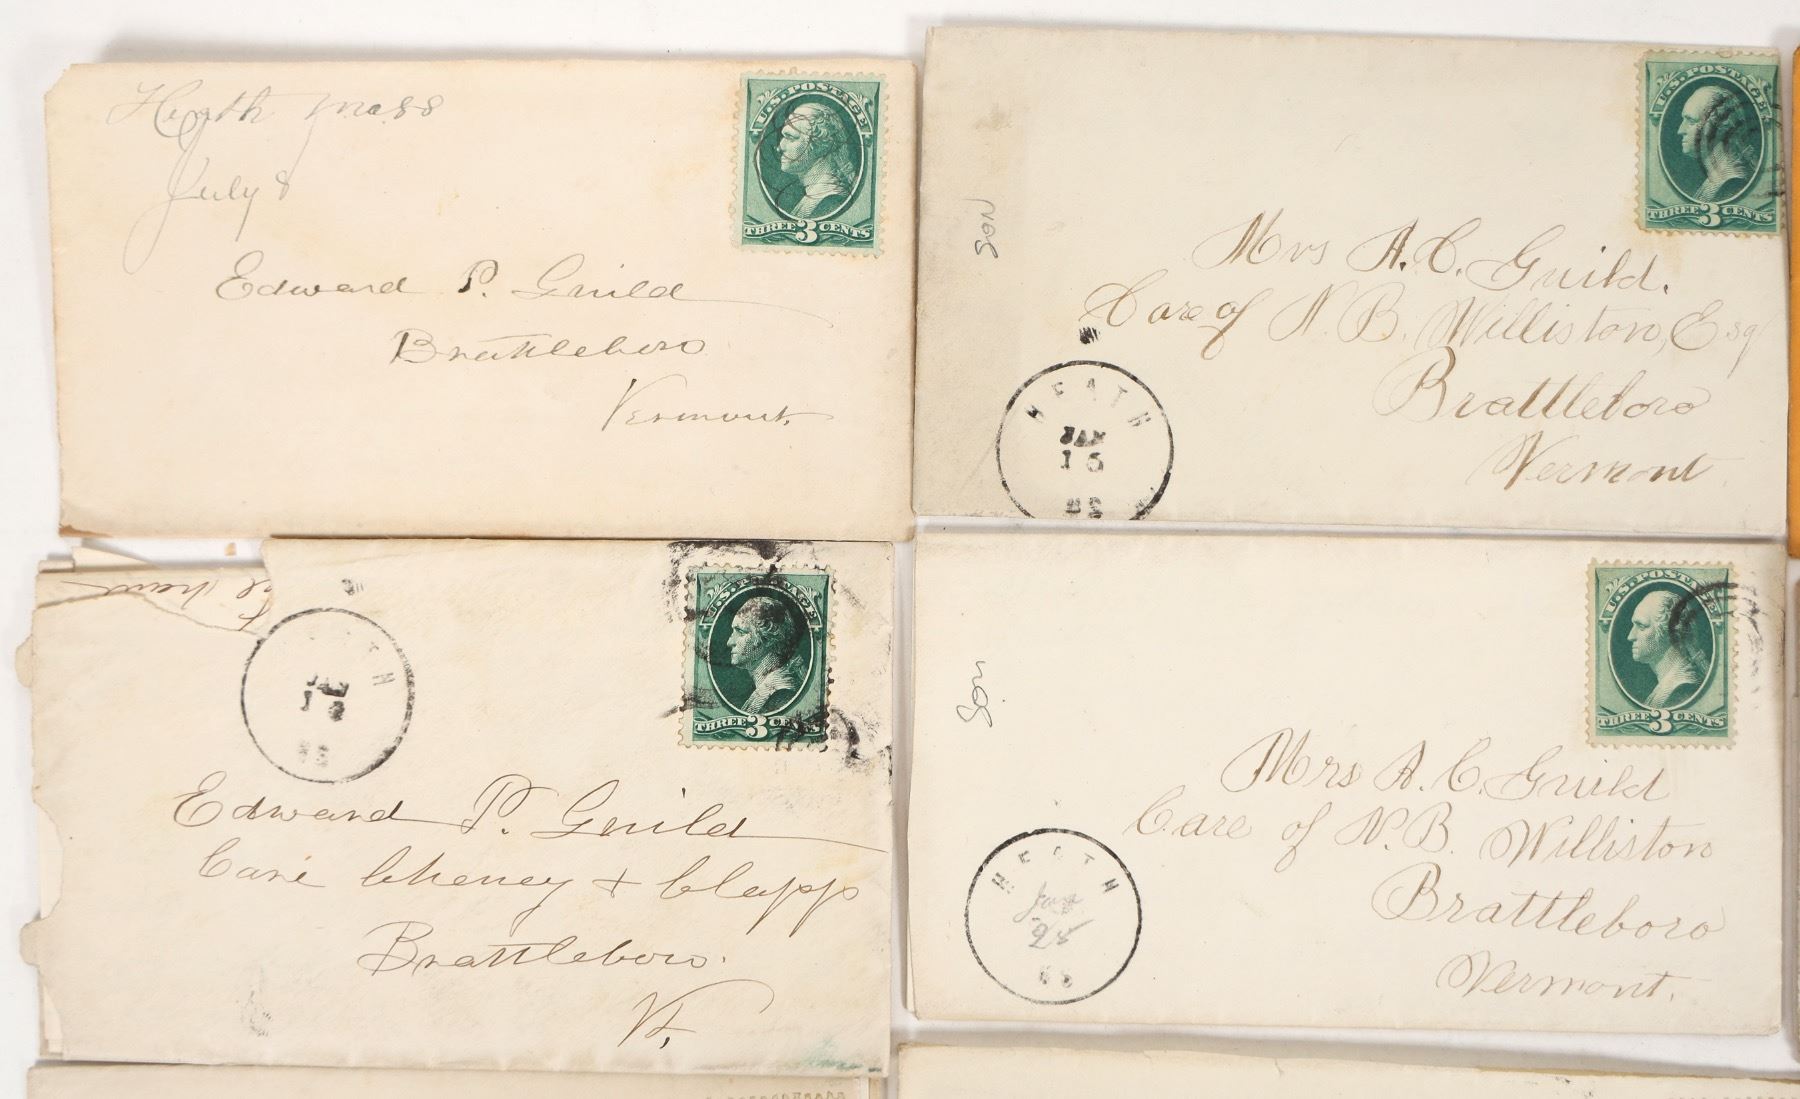 Heath Mass
July 8
U.S. POSTAGE
THREE 3 CENTS
Edward P. Guild
Brattleboro
Vermont.
U.S. POSTAGE
THREE 3 CENTS
SON
Mrs A. C. Guild.
Care of N. B. Williston, Esq
Brattleboro
Vermont.
HEATH
JAN
16
U.S. POSTAGE
THREE 3 CENTS
JAN
Edward P. Guild
Care Cheney & Clapp
Brattleboro.
Vt.
U.S. POSTAGE
THREE 3 CENTS
Son
Mrs A. C. Guild
Care of N. B. Williston
Brattleboro
Vermont.
HEATH
Jan
28